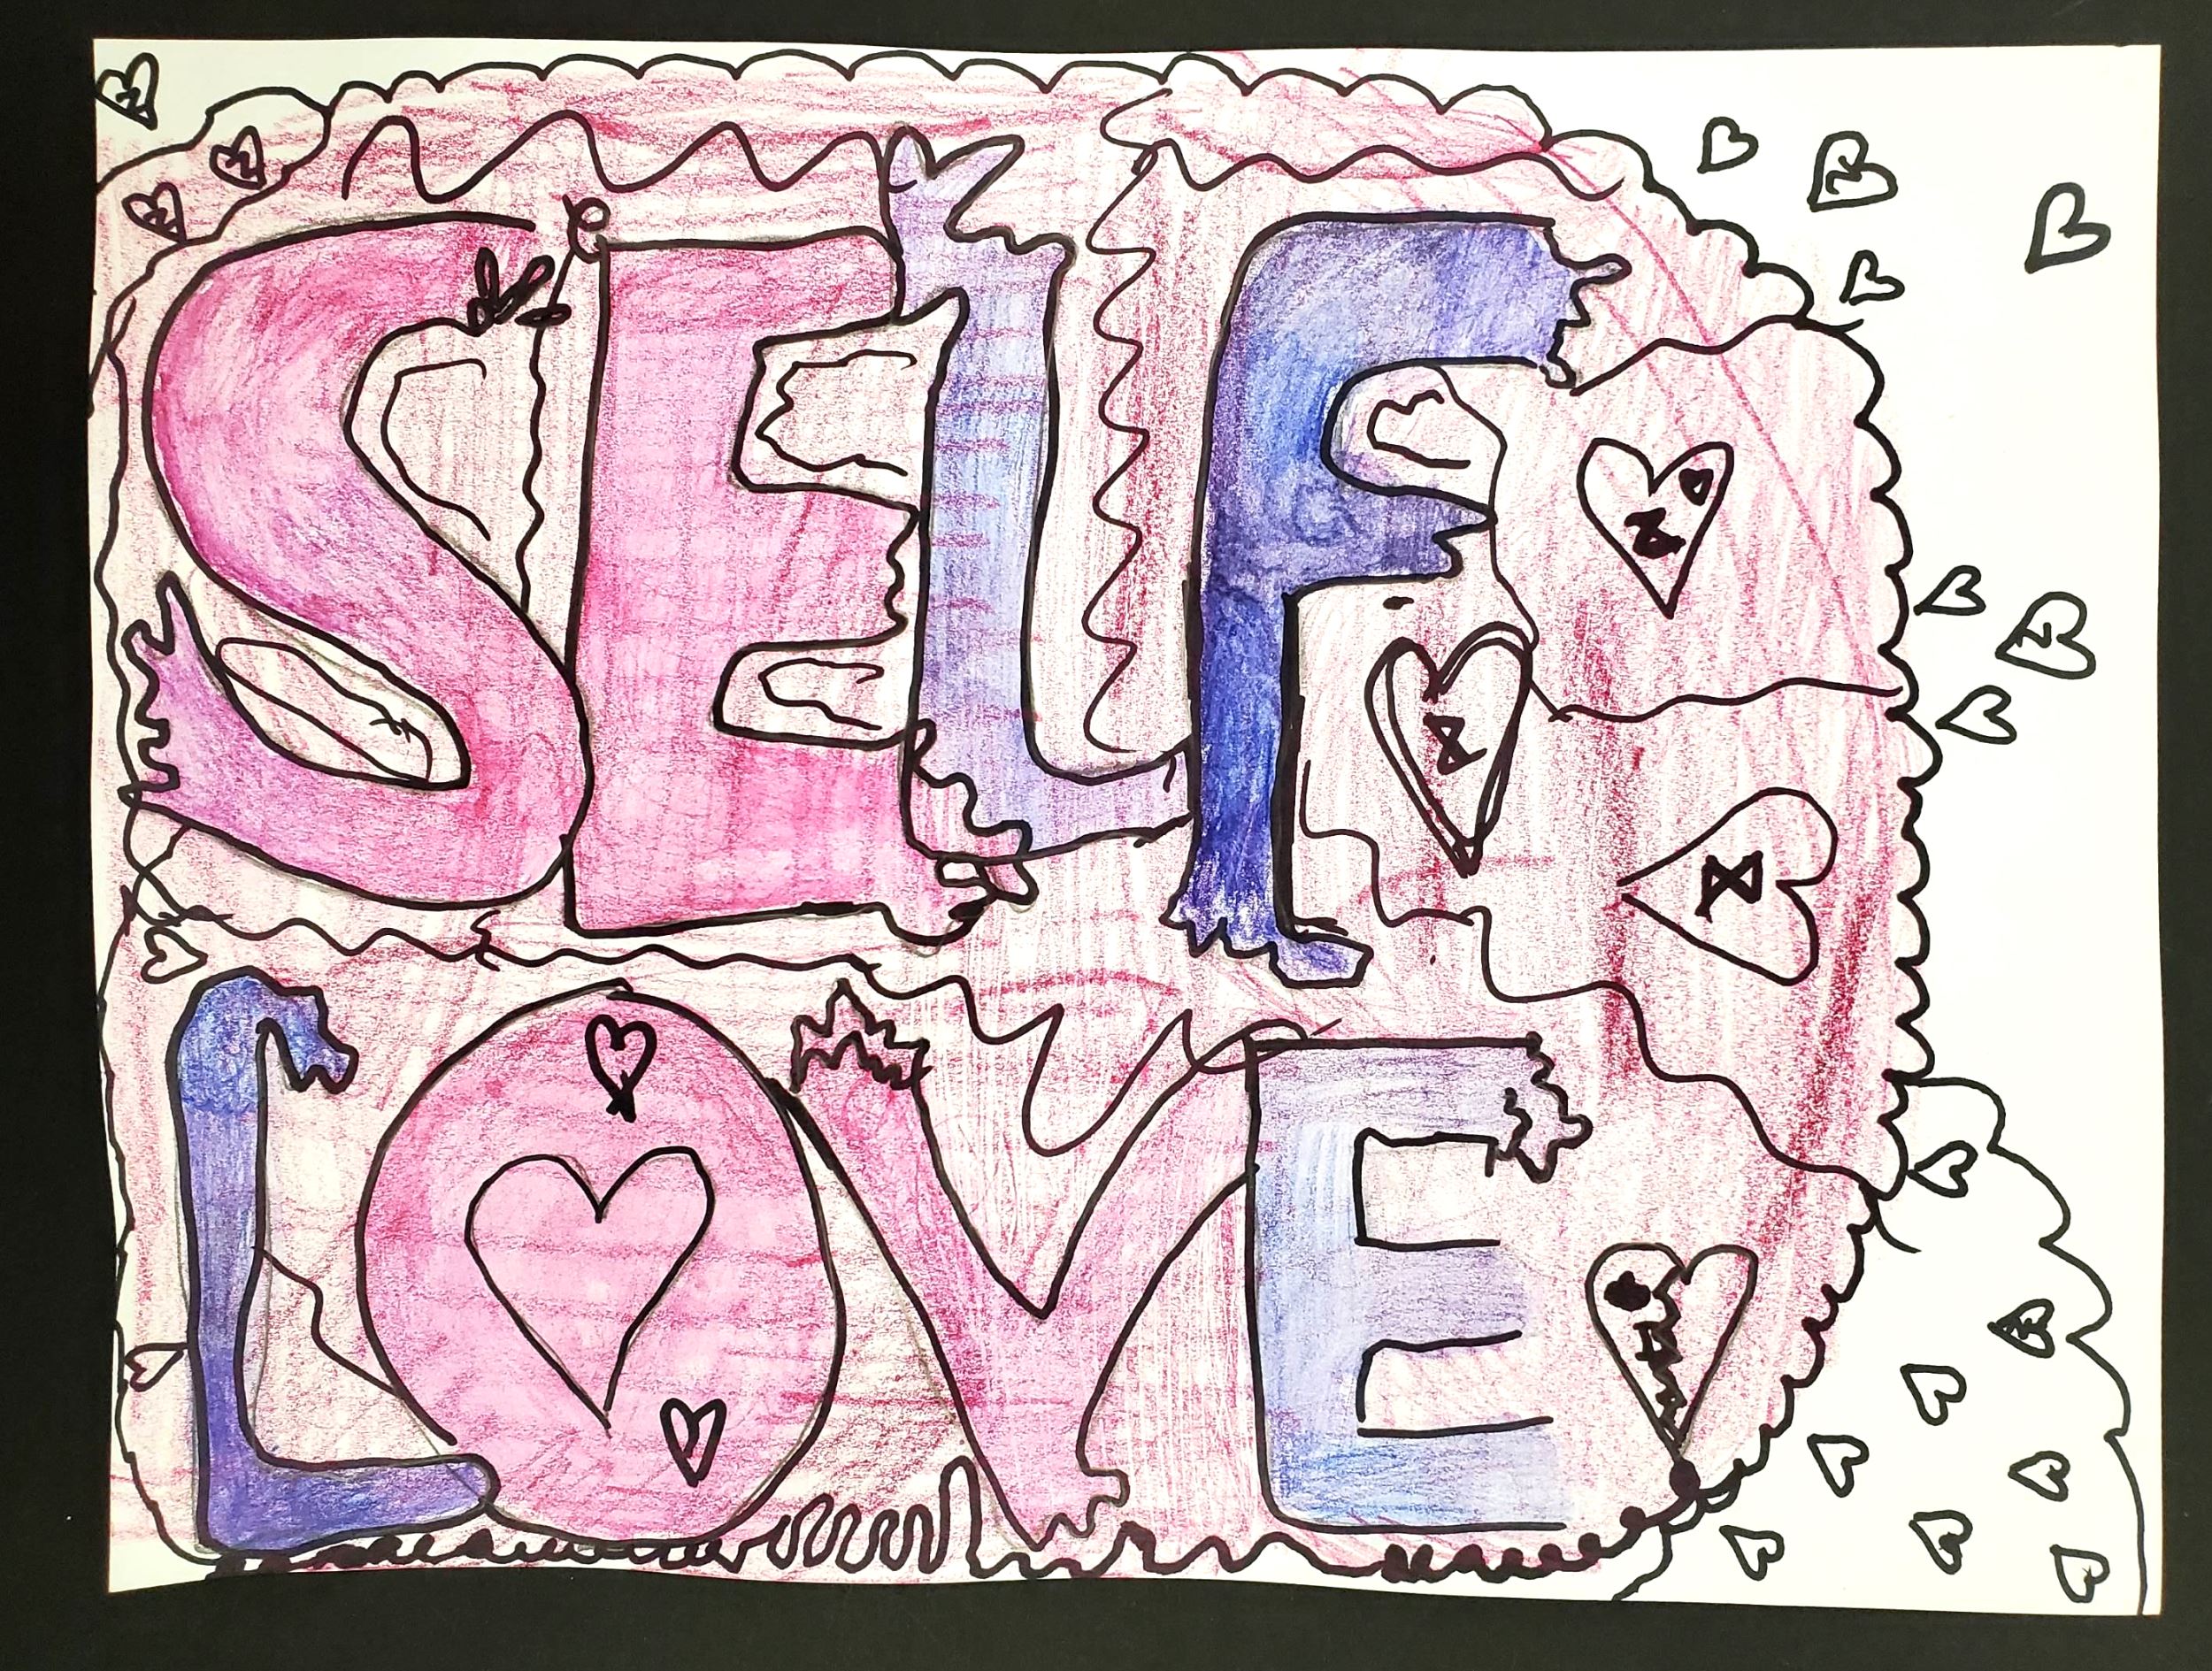 SELF
LOVE